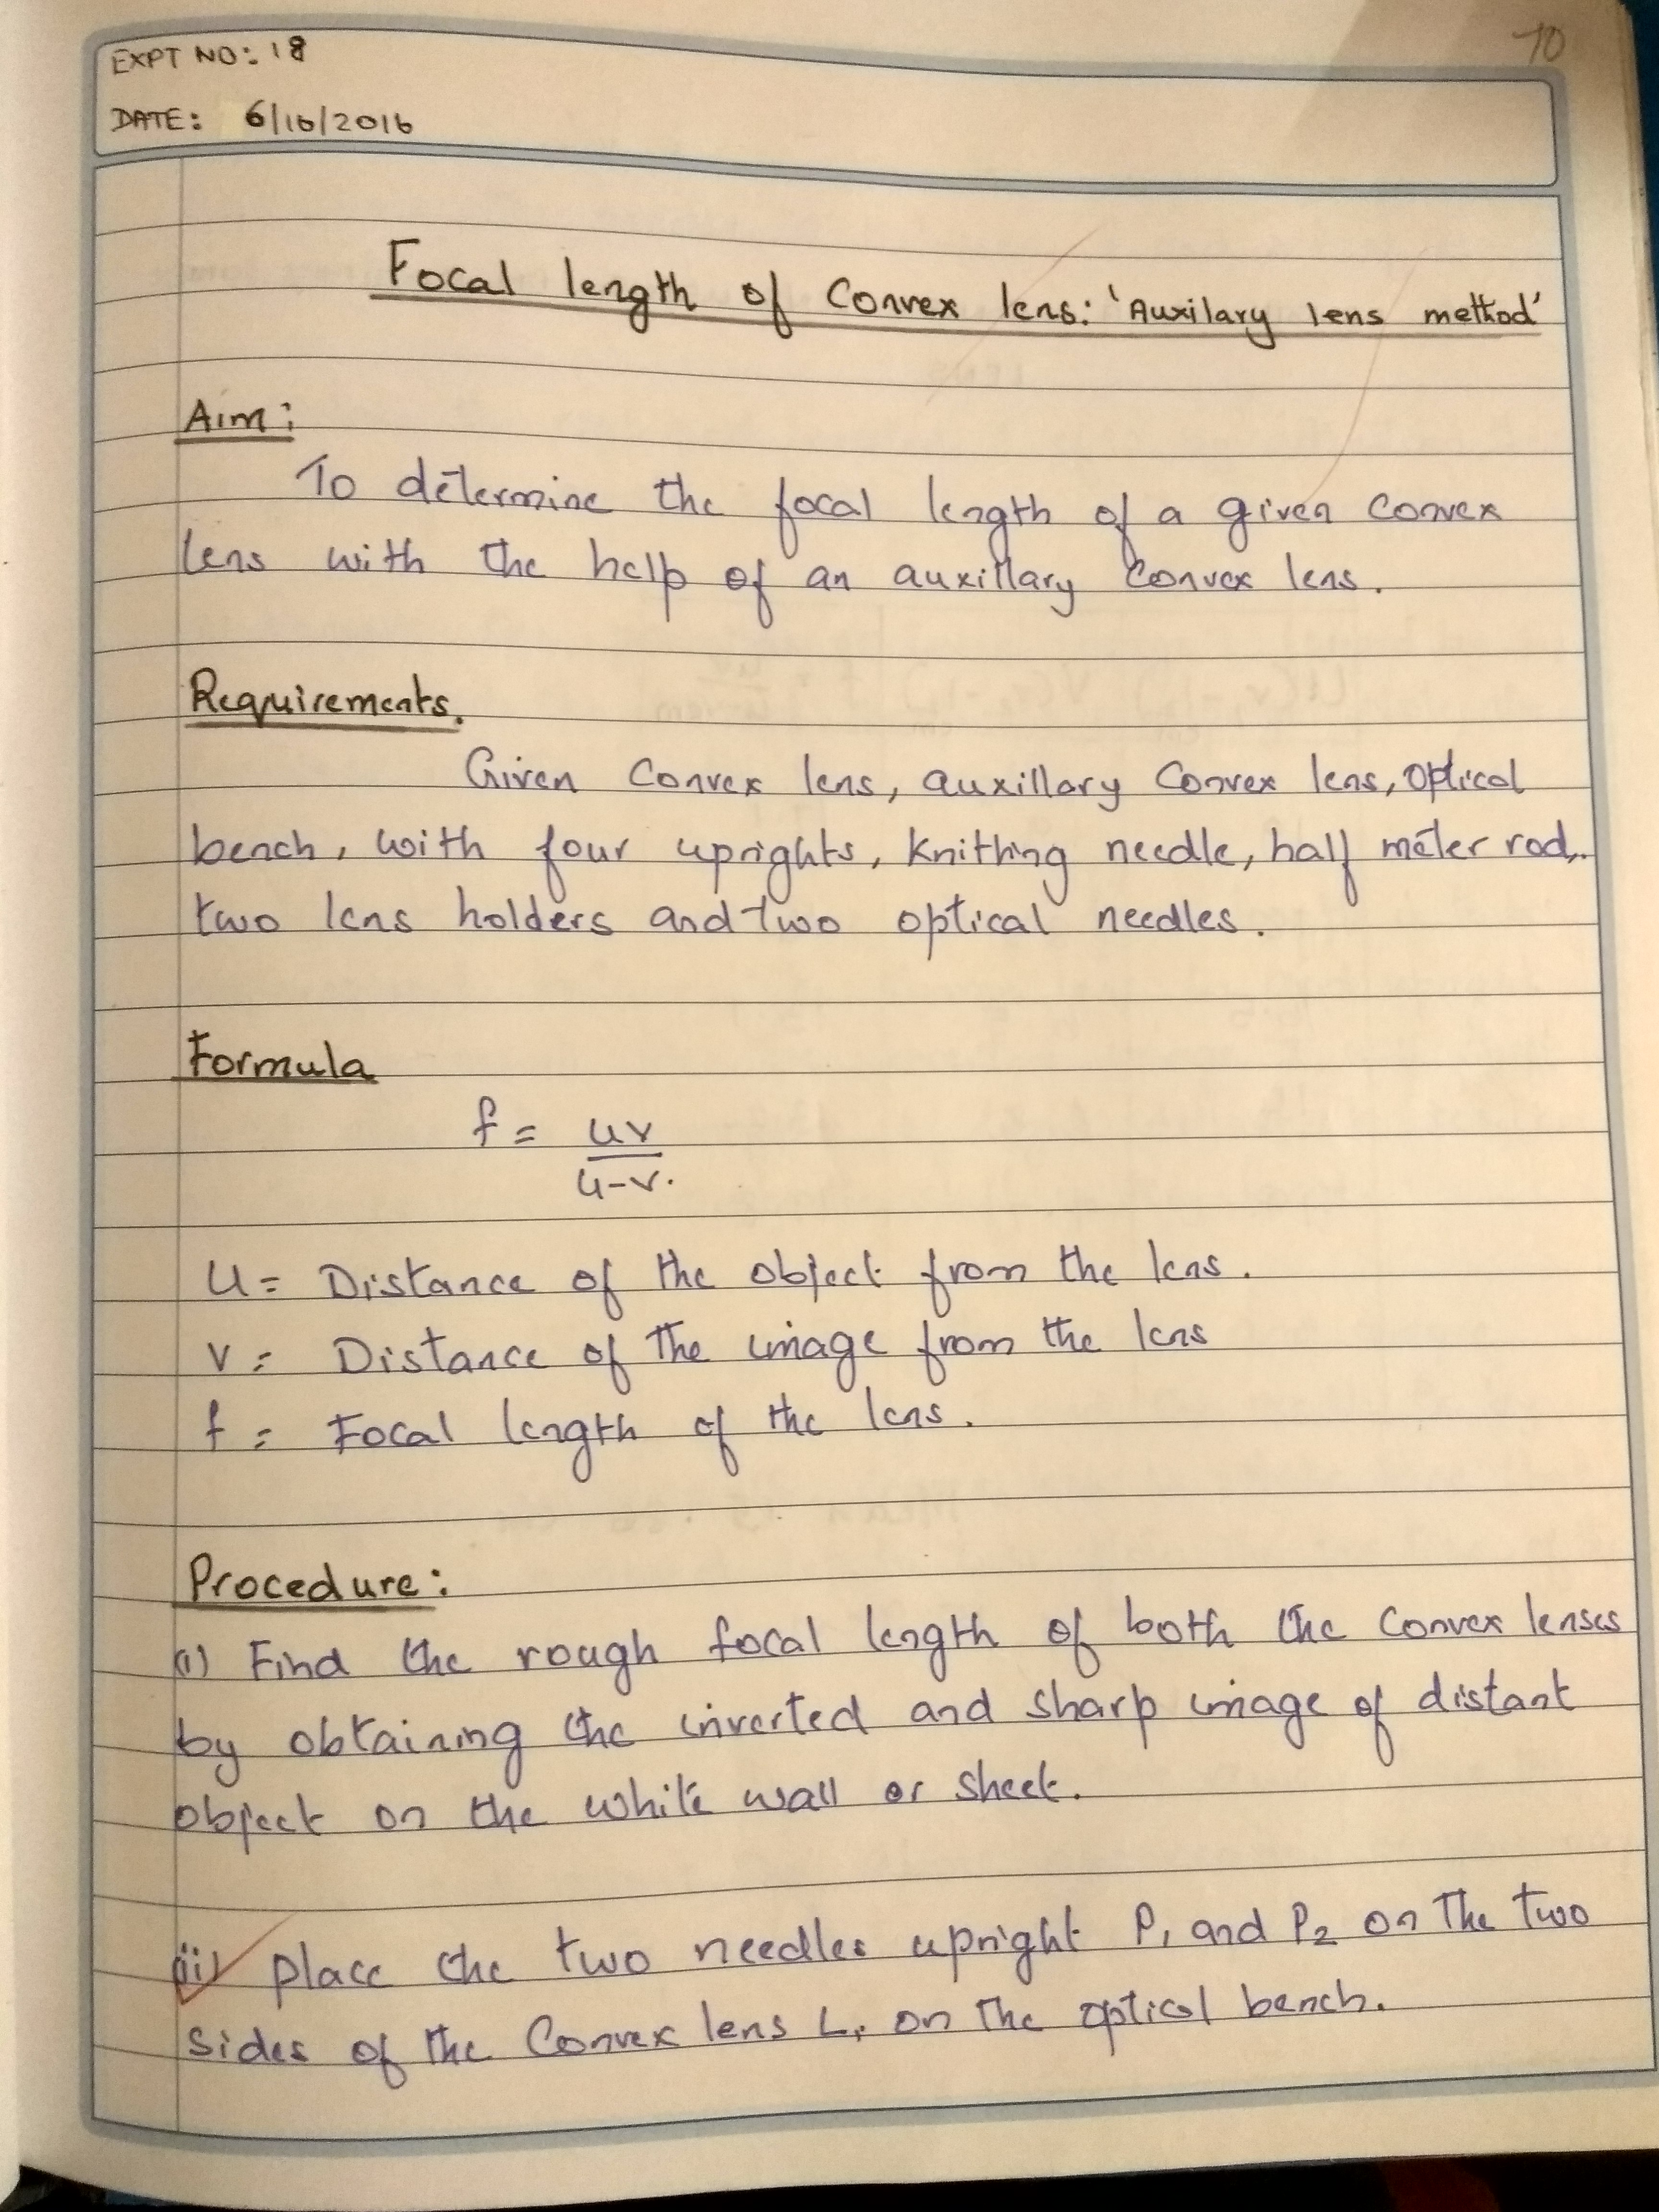 70
EXPT NO: 18
DATE: 6/10/2016
Focal length of Convex lens: 'Auxilary lens method'
Aim:
To determine the focal length of a given convex
lens with the help of an auxillary convex lens.
Requirements.
Given Convex lens, auxillary Convex lens, optical
bench, with four uprights, knitting needle, half meter rod,
two lens holders and two optical needles.
Formula
f = uv
u-v.
u = Distance of the object from the lens.
v = Distance of the image from the lens
f = Focal length of the lens.
Procedure:
(i) Find the rough focal length of both the convex lenses
by obtaining the inverted and sharp image of distant
object on the white wall or sheet.
(ii) place the two needles upright P₁ and P₂ on the two
sides of the Convex lens L₁ on the optical bench.